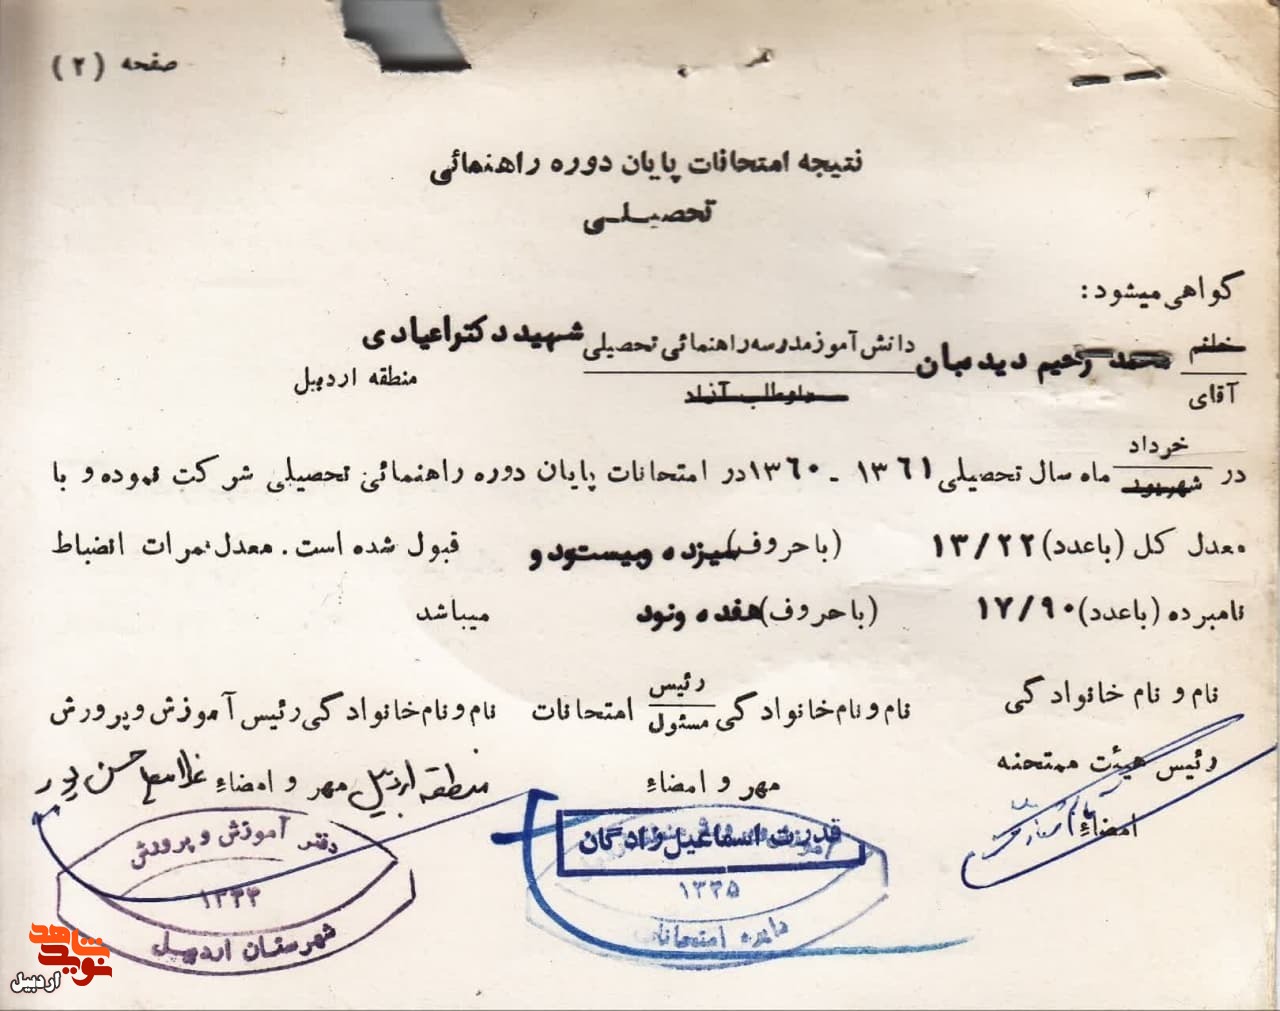 صفحه (۲)
نتیجه امتحانات پایان دوره راهنمائی
تحصیلی
گواهی میشود:
خانم
آقای
محمد رحیم دیدمبان
دانش آموز مدرسه راهنمائی تحصیلی
داوطلب آزاد
شهید دکتر اعیادی
منطقه اردبیل
در خرداد
شهریور
ماه سال تحصیلی ۱۳۶۱ - ۱۳۶۰ در امتحانات پایان دوره راهنمائی تحصیلی شرکت نموده و با
معدل کل (باعدد) ۱۳/۲۲ (باحروف) سیزده وبیستودو قبول شده است. معدل نمرات انضباط
نامبرده (باعدد) ۱۷/۹۰ (باحروف) هفده ونود میباشد
نام و نام خانوادگی
رئیس هیئت ممتحنه
امضاءِ
نام ونام خانوادگی رئیس
مسئول
امتحانات
مهر و امضاءِ
نام ونام خانوادگی رئیس آموزش وپرورش
منطقه اردبیل مهر و امضاءِ غلامع حسن پور
قدرت اسماعیل زادگان
۱۳۳۵
دایره امتحانات
دفتر آموزش و پرورش
۱۳۳۳
شهرستان اردبیل
نوید شاهد
اردبیل